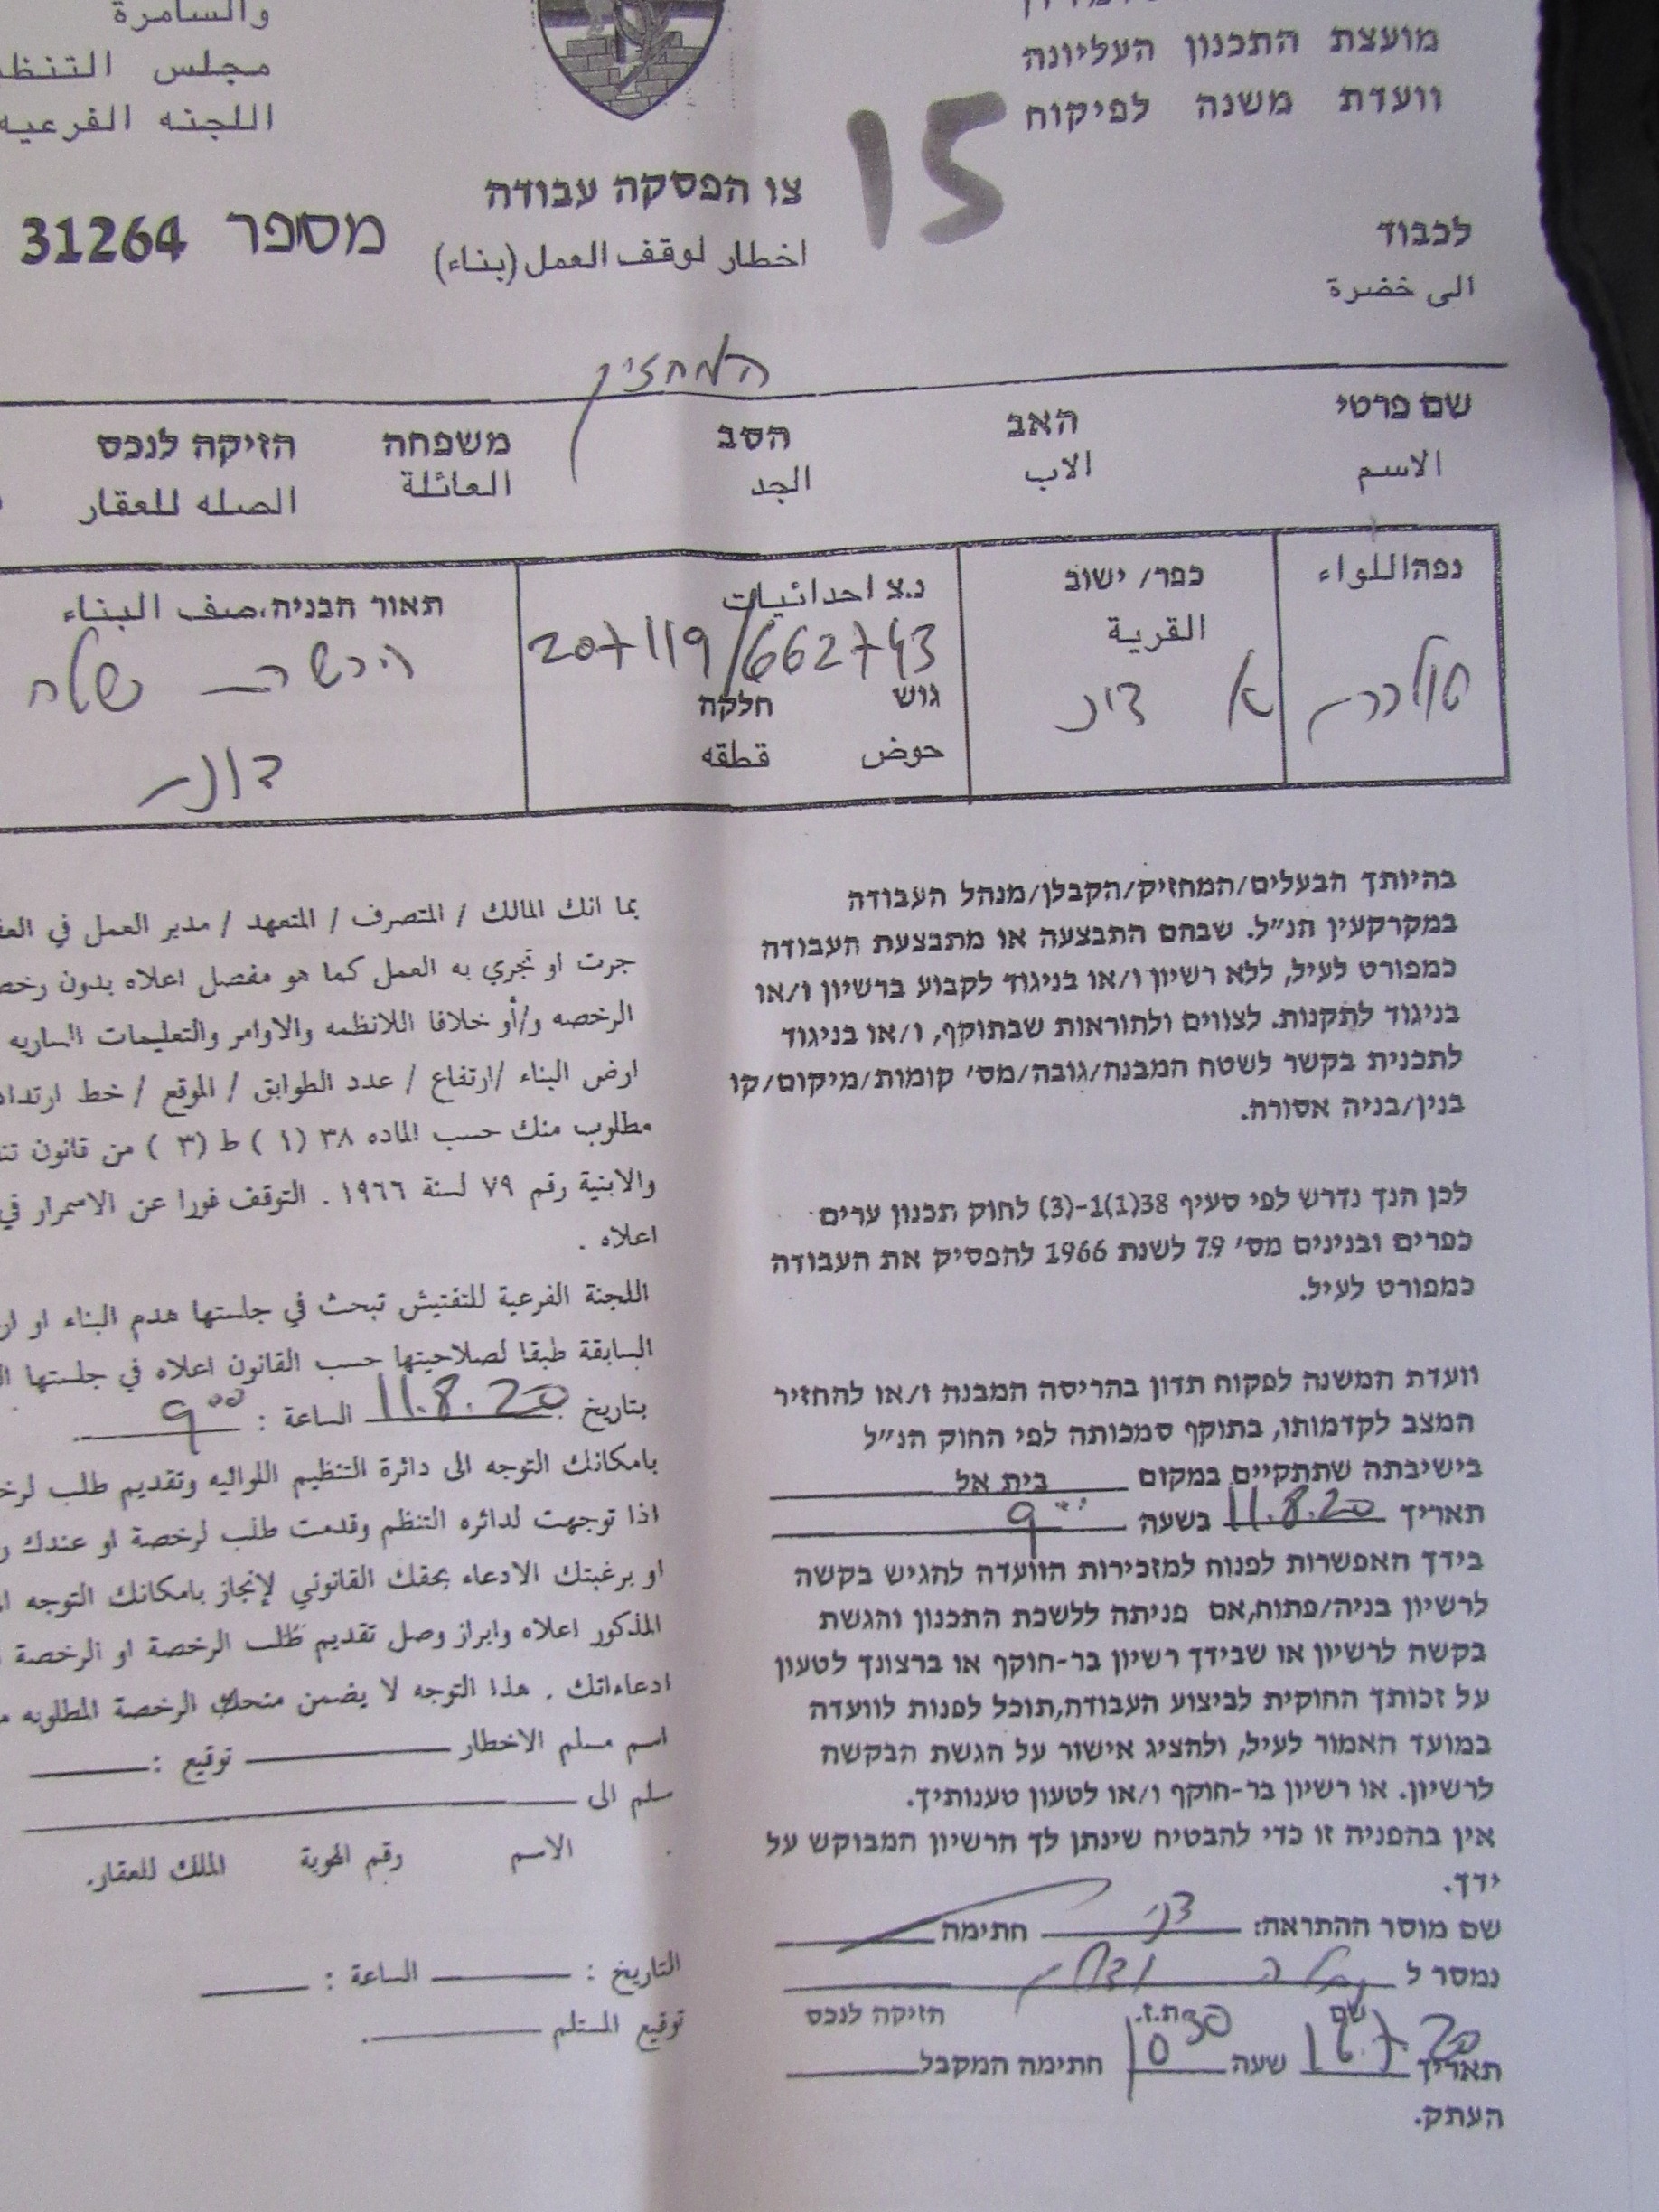 מועצת התכנון העליונה
וועדת משנה לפיקוח
והسامرة
مجلس
اللجنه الفرعيه
15
צו הפסקה עבודה
اخطار لوقف العمل (بناء)
מספר 31264
לכבוד
الى خضرة
המחזיק
שם פרטי האב הסב משפחה הזיקה לנכס
الاسم الاب الجد العائلة الصله للعقار
נפה اللواء כפר/ ישוב נ.צ احداثيات תאור הבניה،صف البناء
القرية
207119/662743
גוש חלקה
حوض قطقه
בהיותך הבעלים/המחזיק/הקבלן/מנהל העבודה
במקרקעין הנ"ל. שבהם התבצעה או מתבצעת העבודה
כמפורט לעיל, ללא רשיון ו/או בניגוד לקבוע ברשיון ו/או
בניגוד לתקנות. לצווים ולהוראות שבתוקף, ו/או בניגוד
לתכנית בקשר לשטח המבנה/גובה/מס' קומות/מיקום/קו
בנין/בניה אסורה.
לכן הנך נדרש לפי סעיף 38(1)1-(3) לחוק תכנון ערים
כפרים ובנינים מס' 79 לשנת 1966 להפסיק את העבודה
כמפורט לעיל.
וועדת המשנה לפקוח תדון בהריסה המבנה ו/או להחזיר
המצב לקדמותו, בתוקף סמכותה לפי החוק הנ"ל
בישיבתה שתתקיים במקום בית אל
תאריך 11.8.20 בשעה 9 00
בידך האפשרות לפנות למזכירות הוועדה להגיש בקשה
לרשיון בניה/פתוח,אם פניתה ללשכת התכנון והגשת
בקשה לרשיון או שבידך רשיון בר-תוקף או ברצונך לטעון
על זכותך החוקית לביצוע העבודה,תוכל לפנות לוועדה
במועד האמור לעיל, ולהציג אישור על הגשת הבקשה
לרשיון. או רשיון בר-תוקף ו/או לטעון טענותיך.
אין בהפניה זו כדי להבטיח שינתן לך הרשיון המבוקש על
ידך.
שם מוסר ההתראה: חתימה
נמסר ל
שם ת.ז. הזיקה לנכס
תאריך 16.7.20 שעה 10 30 חתימה המקבל
העתק.
بما انك المالك / المتصرف / المتعهد / مدير العمل في
جرت او تجري به العمل كما هو مفصل اعلاه بدون
الرخصه و/أو خلافا اللانظمه والاوامر والتعليمات الساريه
ارض البناء /ارتفاع / عدد الطوابق / الموقع / خط
مطلوب منك حسب الماده ٣٨ (١ ) ط (٣ ) من قانون
والابنية رقم ٧٩ لسنة ١٩٦٦ . التوقف فورا عن الاسمرار في
اعلاه .
اللجنة الفرعية للتفتيش تبحث في جلستها هدم البناء او
السابقة طبقا لصلاحيتها حسب القانون اعلاه في جلستها
بتاريخ 11.8.20 الساعة : 9 00
بامكانك التوجه الى دائرة التنظيم اللوائيه وتقديم طلب
اذا توجهت لدائره التنظم وقدمت طلب لرخصة او عندك
او برغبتك الادعاء بحقك القانوني لإنجاز بامكانك التوجه
المذكور اعلاه وابراز وصل تقديم طلب الرخصة او الرخصة
ادعاءاتك . هذا التوجه لا يضمن منحك الرخصة المطلوبه
اسم مسلم الاخطار توقيع :
سلم الى
الاسم رقم الهوية الملك للعقار.
التاريخ : الساعة :
توقيع المستلم .